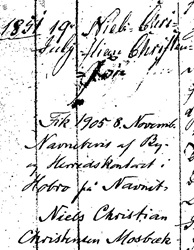 1851 19 Niels Chri-
July stian Christen-
sen
Fik 1905 8. Novemb.
Navnebevis af By-
og Herredskontoret i
Hobro på Navnet:
Niels Christian
Christensen Mosbæk